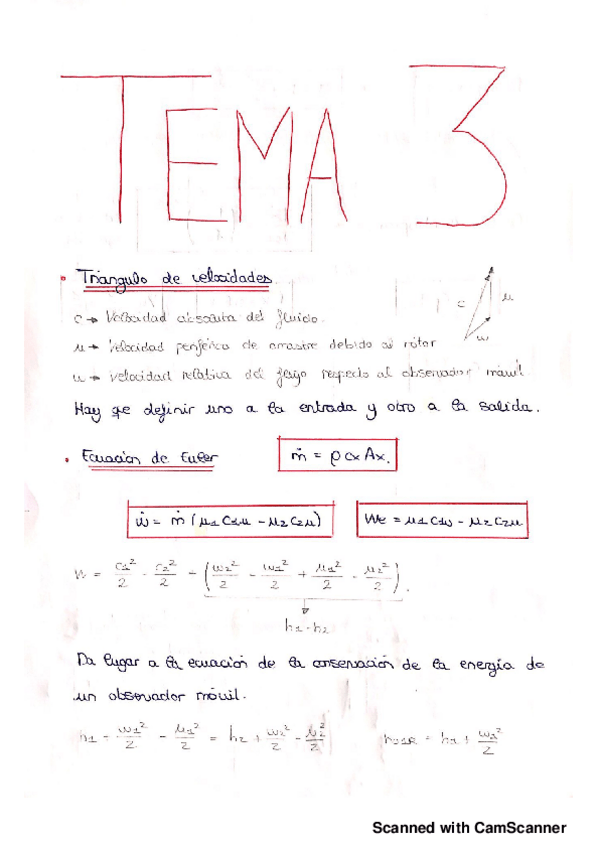 TEMA 3
• Triangulo de velocidades.
c → Velocidad absoluta del fluido.
c
u
w
u → Velocidad periférica de arrastre debido al rotor
w → Velocidad relativa del flujo respecto al observador móvil
Hay qe definir uno a la entrada y otro a la salida.
• Ecuación de Euler
ṁ = ρ cx Ax.
ẇ = ṁ (u1 C1u - u2 C2u)
We = u1 C1u - u2 C2u
W = c1²/2 - c2²/2 - (w2²/2 - w1²/2 + u1²/2 - u2²/2).
h1 - h2
Da lugar a la ecuación de la conservación de la energía de
un observador móvil.
h1 + w1²/2 - u1²/2 = h2 + w2²/2 - u2²/2
h01R = h1 + w1²/2
Scanned with CamScanner